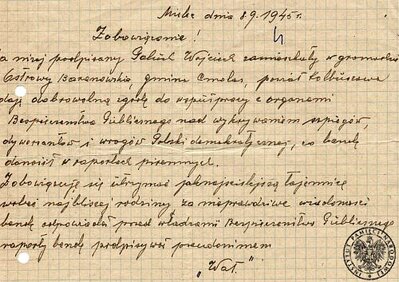 Mielec dnia 8.9.1945 r.
Zobowiązanie!
a niżej podpisany Gabriel Wojciech zamieszkały w gromadzie
Ostrowy Baranowskie, gmina Cmolas, powiat Kolbuszowa
daję dobrowolną zgodę do współpracy z organami
Bezpieczeństwa Publicznego nad wykrywaniem szpiegów,
dywersantów i wrogów Polski demokratycznej, co bendę
donosił w raportach pisemnych.
Zobowięzuję się utrzymać jaknajściślejszą tajemnicę
wobec najbliszej rodziny za nieprawdziwe wiadomości
bendę odpowiadał przed władzami Bezpieczeństwa Publicznego
raporty bendę podpisywał pseudonimem
„Wat"
INSTYTUT PAMIĘCI NARODOWEJ